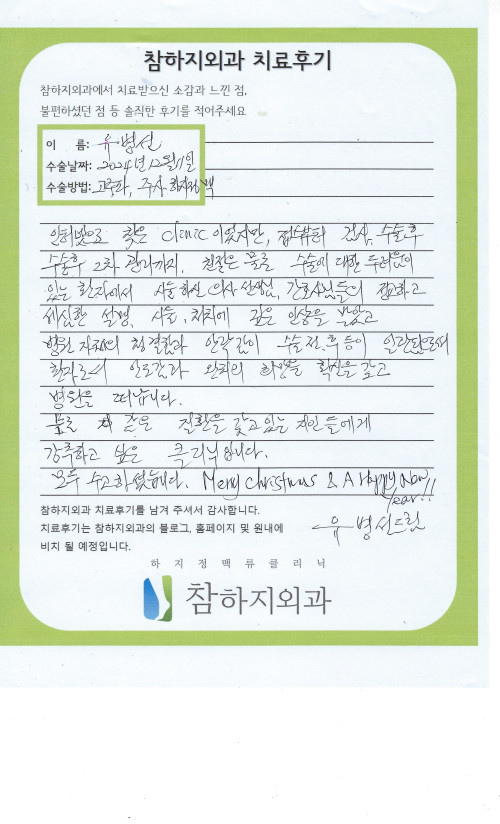 참하지외과 치료후기
참하지외과에서 치료받으신 소감과 느낀 점,
불편하셨던 점 등 솔직한 후기를 적어주세요
이 름: 유병선
수술날짜: 2024년 12월 11일
수술방법: 고주파, 주사
인터넷으로 찾은 Clinic 이었지만, 접수부터 검사, 수술후
수술후 2차 관리까지, 친절은 물론 수술에 대한 두려움이
있는 환자에게 시술하신 의사 선생님, 간호사님들의 친교하고
세심한 설명, 시술, 처치에 깊은 인상을 받았고
병원 자체의 청결함과 안락감이 수술 전.후 등이
환자로서 안도감과 완치의 희망을 확신을 갖고
병원을 떠납니다.
물론 저 같은 질환을 갖고 있는 지인들에게
강추하고 싶은 크리닉 입니다.
모두 수고하셨습니다. Merry Christmas & A Happy New
Year!!
참하지외과 치료후기를 남겨 주셔서 감사합니다.
치료후기는 참하지외과의 블로그, 홈페이지 및 원내에
비치 될 예정입니다.
유병선드림
하지정맥류클리닉
참하지외과